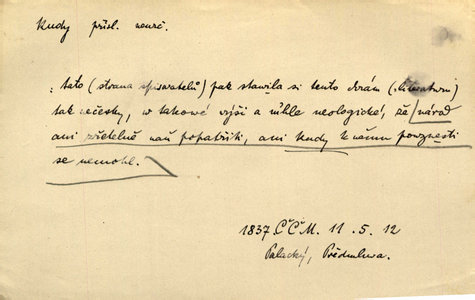 Kudy přísl. neurč.
„tato (strana spisovatelů) pak stavila si tento chrám (literatury)
tak nečesky, w takowé wýši a mhle neologické, že národ
ani zřetelně naň popatřiti, ani kudy k němu powznésti
se nemohl.
1837. Č.Č.M. 11 . 5. 12
Palacký, Předmluwa.